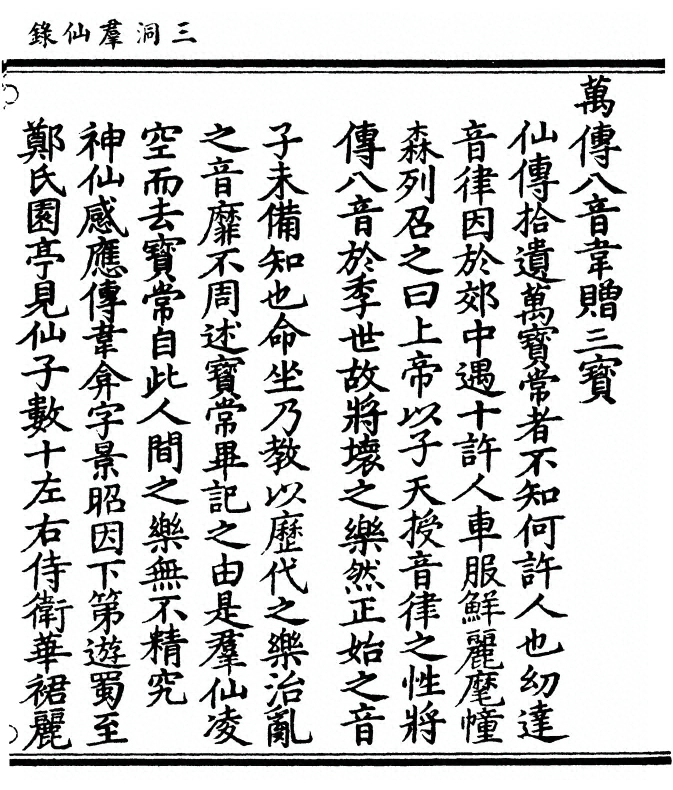 三洞羣仙錄
萬傳八音韋贈三寳
仙傳拾遺萬寳常者不知何許人也幼達
音律因於郊中遇十許人車服鮮麗麾幢
森列召之曰上帝以子天授音律之性將
傳八音於季世故將壞之樂然正始之音
子未備知也命坐乃教以歷代之樂治亂
之音靡不周述寳常畢記之由是羣仙凌
空而去寳常自此人間之樂無不精究
神仙感應傳韋弇字景昭因下第遊蜀至
鄭氏園亭見仙子數十左右侍衛華裾麗